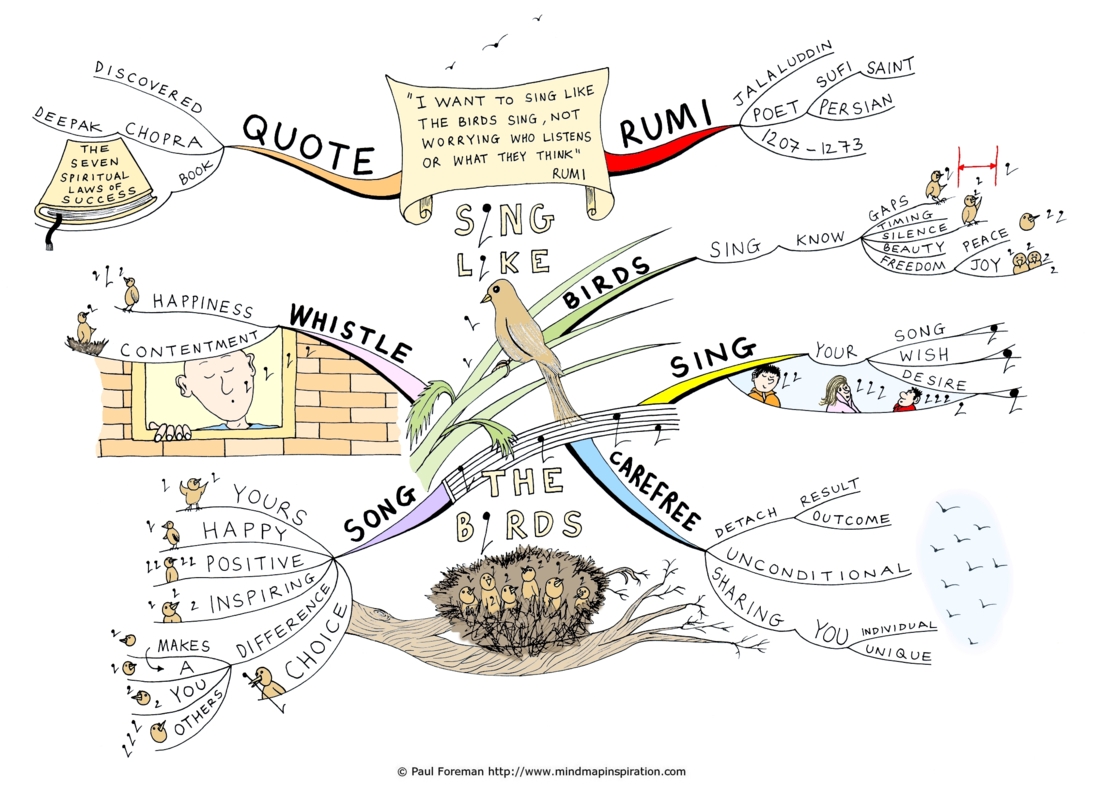 "I WANT TO SING LIKE
THE BIRDS SING, NOT
WORRYING WHO LISTENS
OR WHAT THEY THINK"
RUMI
SING
LIKE
THE
BIRDS
QUOTE
DISCOVERED
DEEPAK
CHOPRA
BOOK
THE
SEVEN
SPIRITUAL
LAWS OF
SUCCESS
RUMI
JALALUDDIN
POET
SUFI
SAINT
PERSIAN
1207 - 1273
BIRDS
SING
KNOW
GAPS
TIMING
SILENCE
BEAUTY
FREEDOM
PEACE
JOY
SING
YOUR
SONG
WISH
DESIRE
CAREFREE
DETACH
RESULT
OUTCOME
UNCONDITIONAL
SHARING
YOU
INDIVIDUAL
UNIQUE
SONG
YOURS
HAPPY
POSITIVE
INSPIRING
DIFFERENCE
MAKES
A
YOU
OTHERS
CHOICE
WHISTLE
HAPPINESS
CONTENTMENT
© Paul Foreman http://www.mindmapinspiration.com